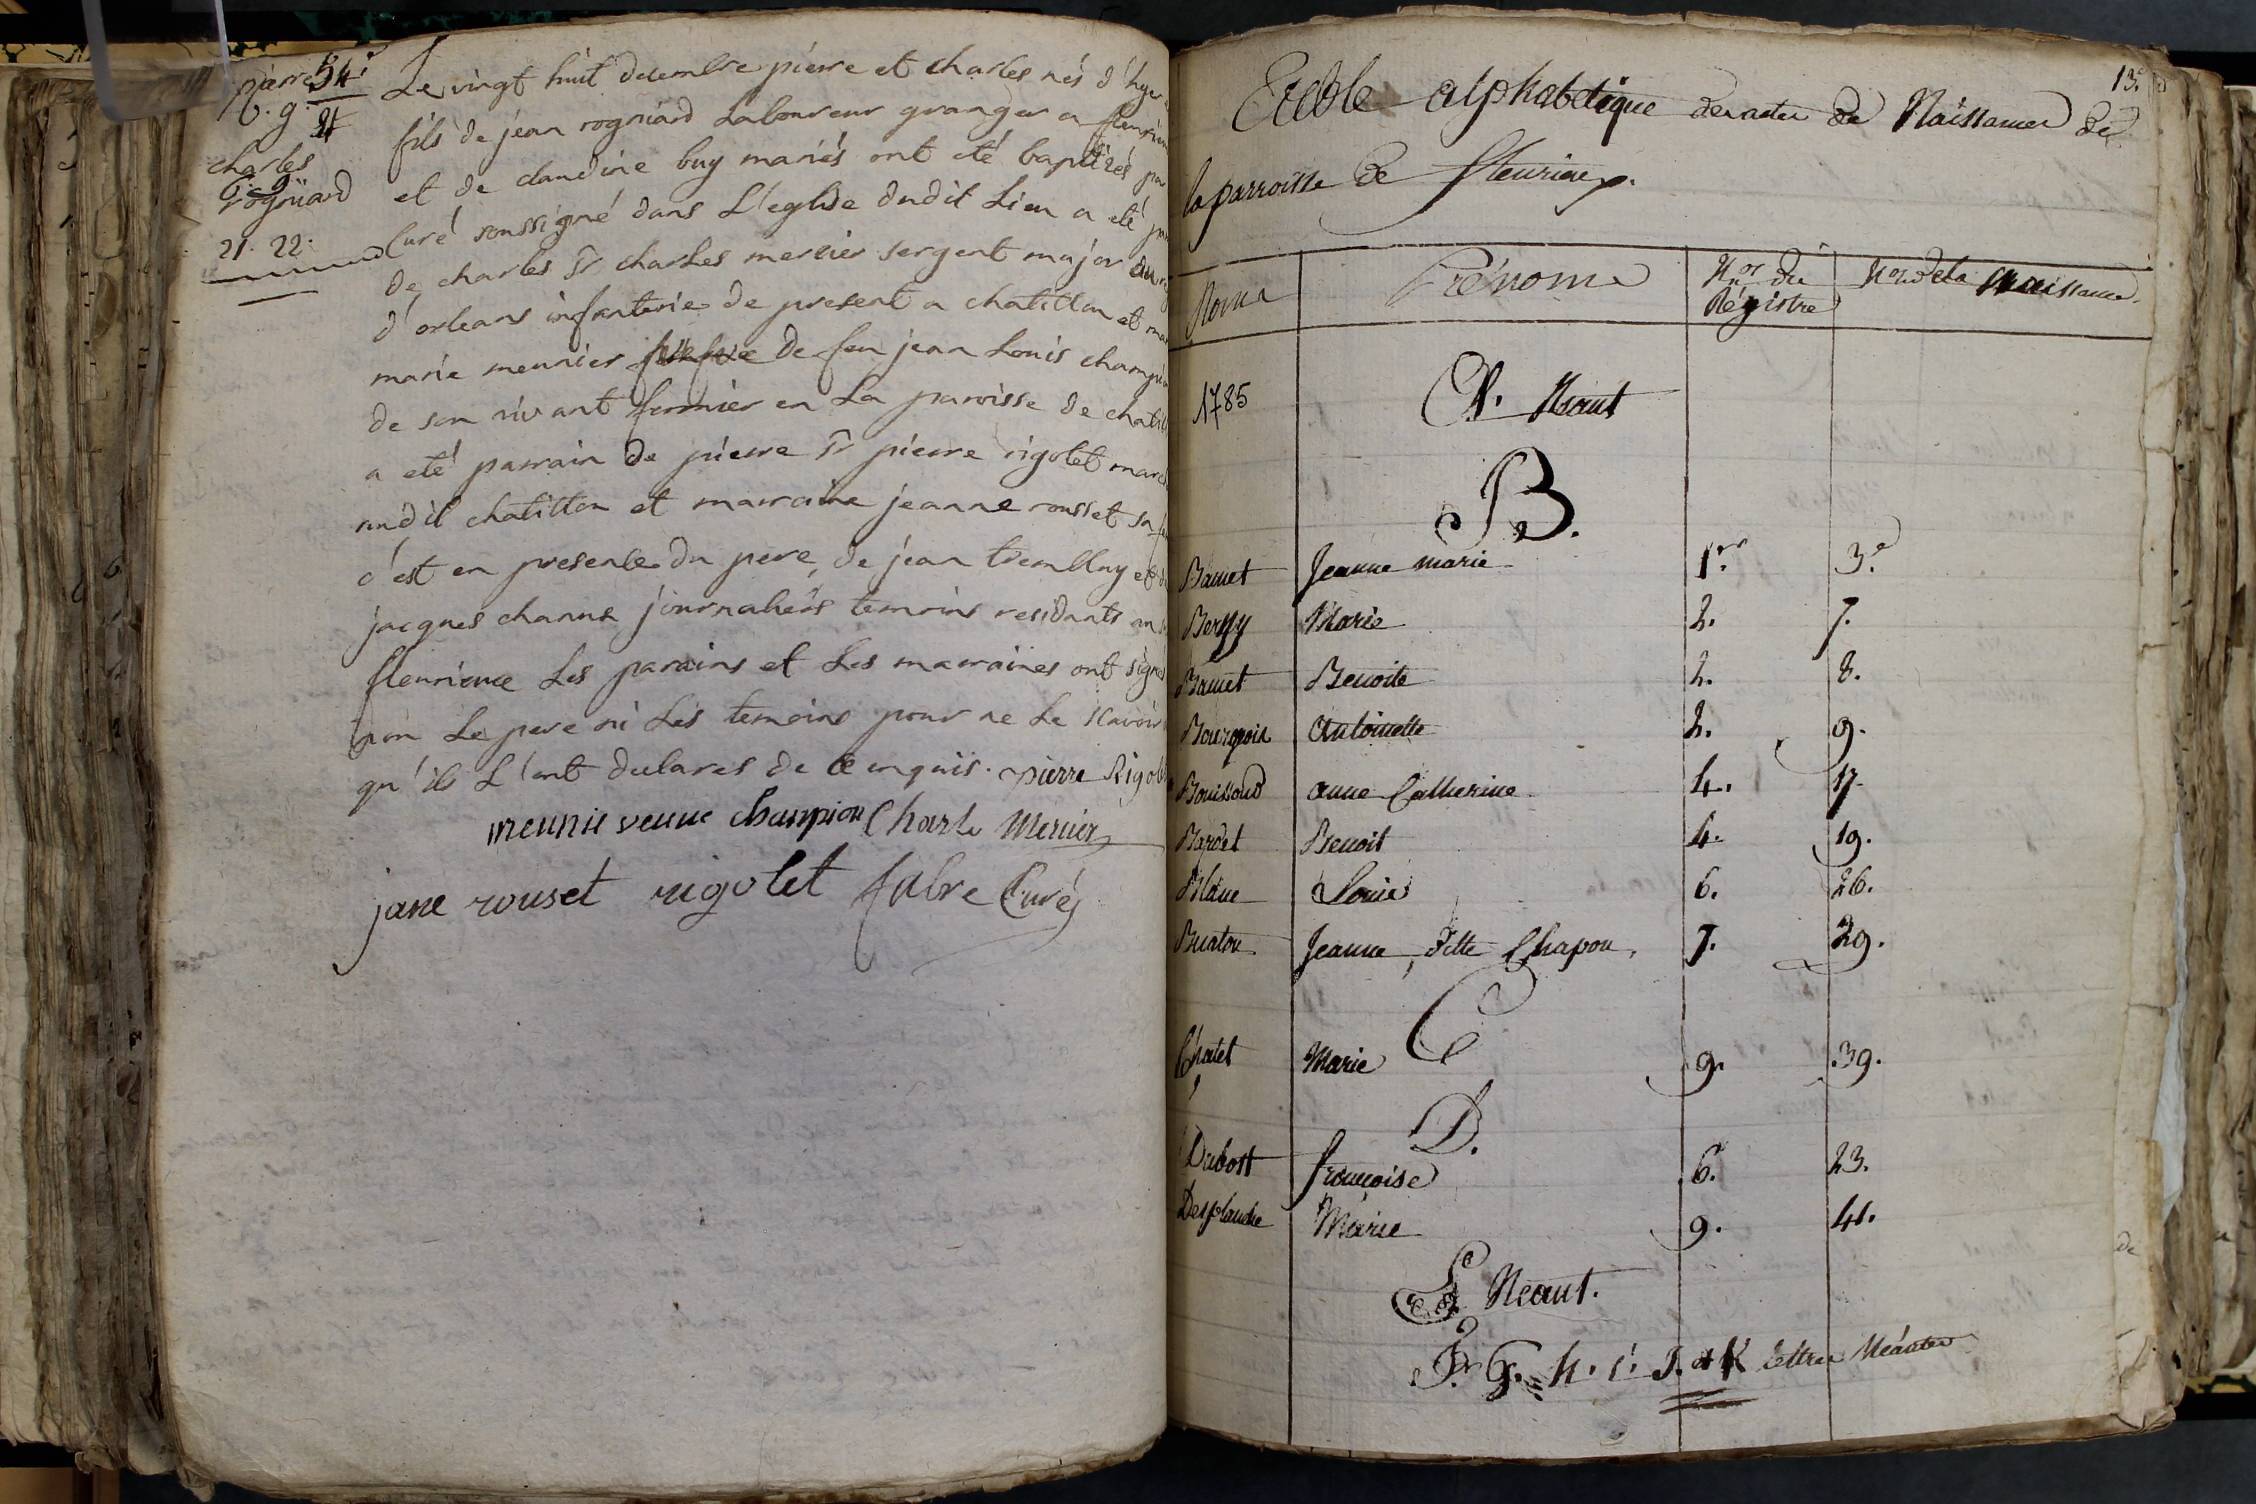 pierre 54e
b. g.
21
charles
b. g.
rogniard
21. 22.
Le vingt huit decembre pierre et charles nés d'hyer
fils de jean rogniard Laboureur granger a fleurieu
et de claudine buy mariés ont eté baptisés par
Curé soussigné dans L'eglise dudit Lieu a eté
de charles Sr charles mercier sergent major du
d'orleans infanterie de present a chatillon et
marie meunier de feu jean Louis champion
de son vivant fermier en La paroisse de chatill
a eté parrain de pierre Sr pierre rigolet march
audit chatillon et marraine jeanne rousset sa
c'est en presence du pere, de jean tremblay et
jacques channa journaliers temoins residants au
fleurieux Les parains et Les marraines ont signé
non Le pere ni Les temoins pour ne Le scavoir
qu'ils L'ont declarés de ce enquis. pierre Rigol
meunie veuve champion Charle Mercier
jane rouset rigolet fabre Curé
13e
Table alphabetique des actes de Naissances de
la parroisse de fleurieux.
Noms Prénoms Nos du Régistre Nos de la Naissance.
1785 A. Néant
B.
Bamet Jeanne marie 1er. 3e.
Berry Marie 2. 7.
Bamet Benoite 2. 8.
Bourgeois Antoinette 2. 9.
Bouissoud anne Catherine 4. 17.
Bardet Benoit 4. 19.
Blanc Louis 6. 26.
Buaton Jeanne, ditte Chapon. 7. 29.
C
Chatel Marie 9. 39.
D.
Dubost françoise 6. 23.
Desplanche Marie 9. 41.
E. Néant.
F. G. h. i. J. et K lettres Néantes